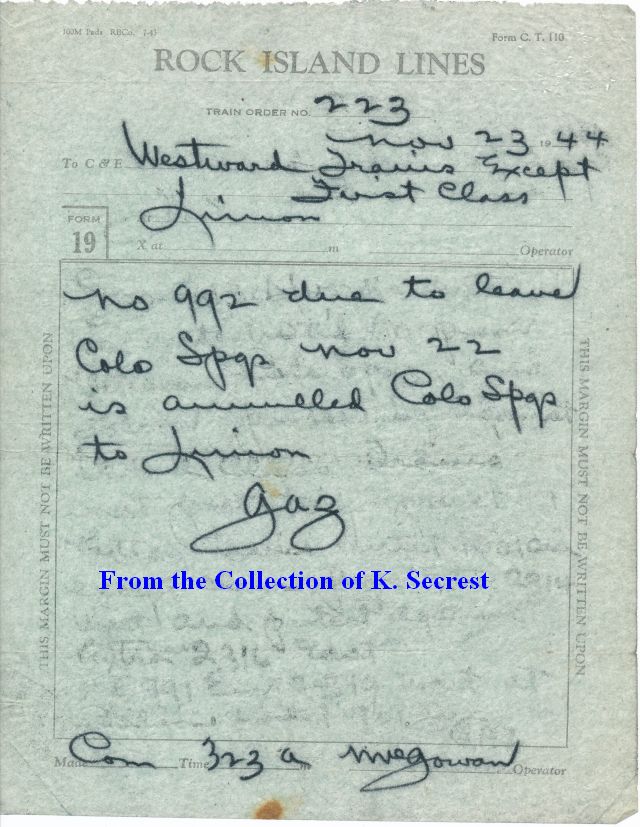 100M Pads RBCo. 7-43 Form C. T. 110
ROCK ISLAND LINES
TRAIN ORDER NO. 223
Nov 23 1944
To C & E Westward Trains Except
First Class
Limon
FORM
19
X at m Operator
THIS MARGIN MUST NOT BE WRITTEN UPON
THIS MARGIN MUST NOT BE WRITTEN UPON
No 992 due to leave
Colo Spgs Nov 22
is annulled Colo Spgs
to Limon
gaz
From the Collection of K. Secrest
Made Com Time 323 a m McGowan Operator